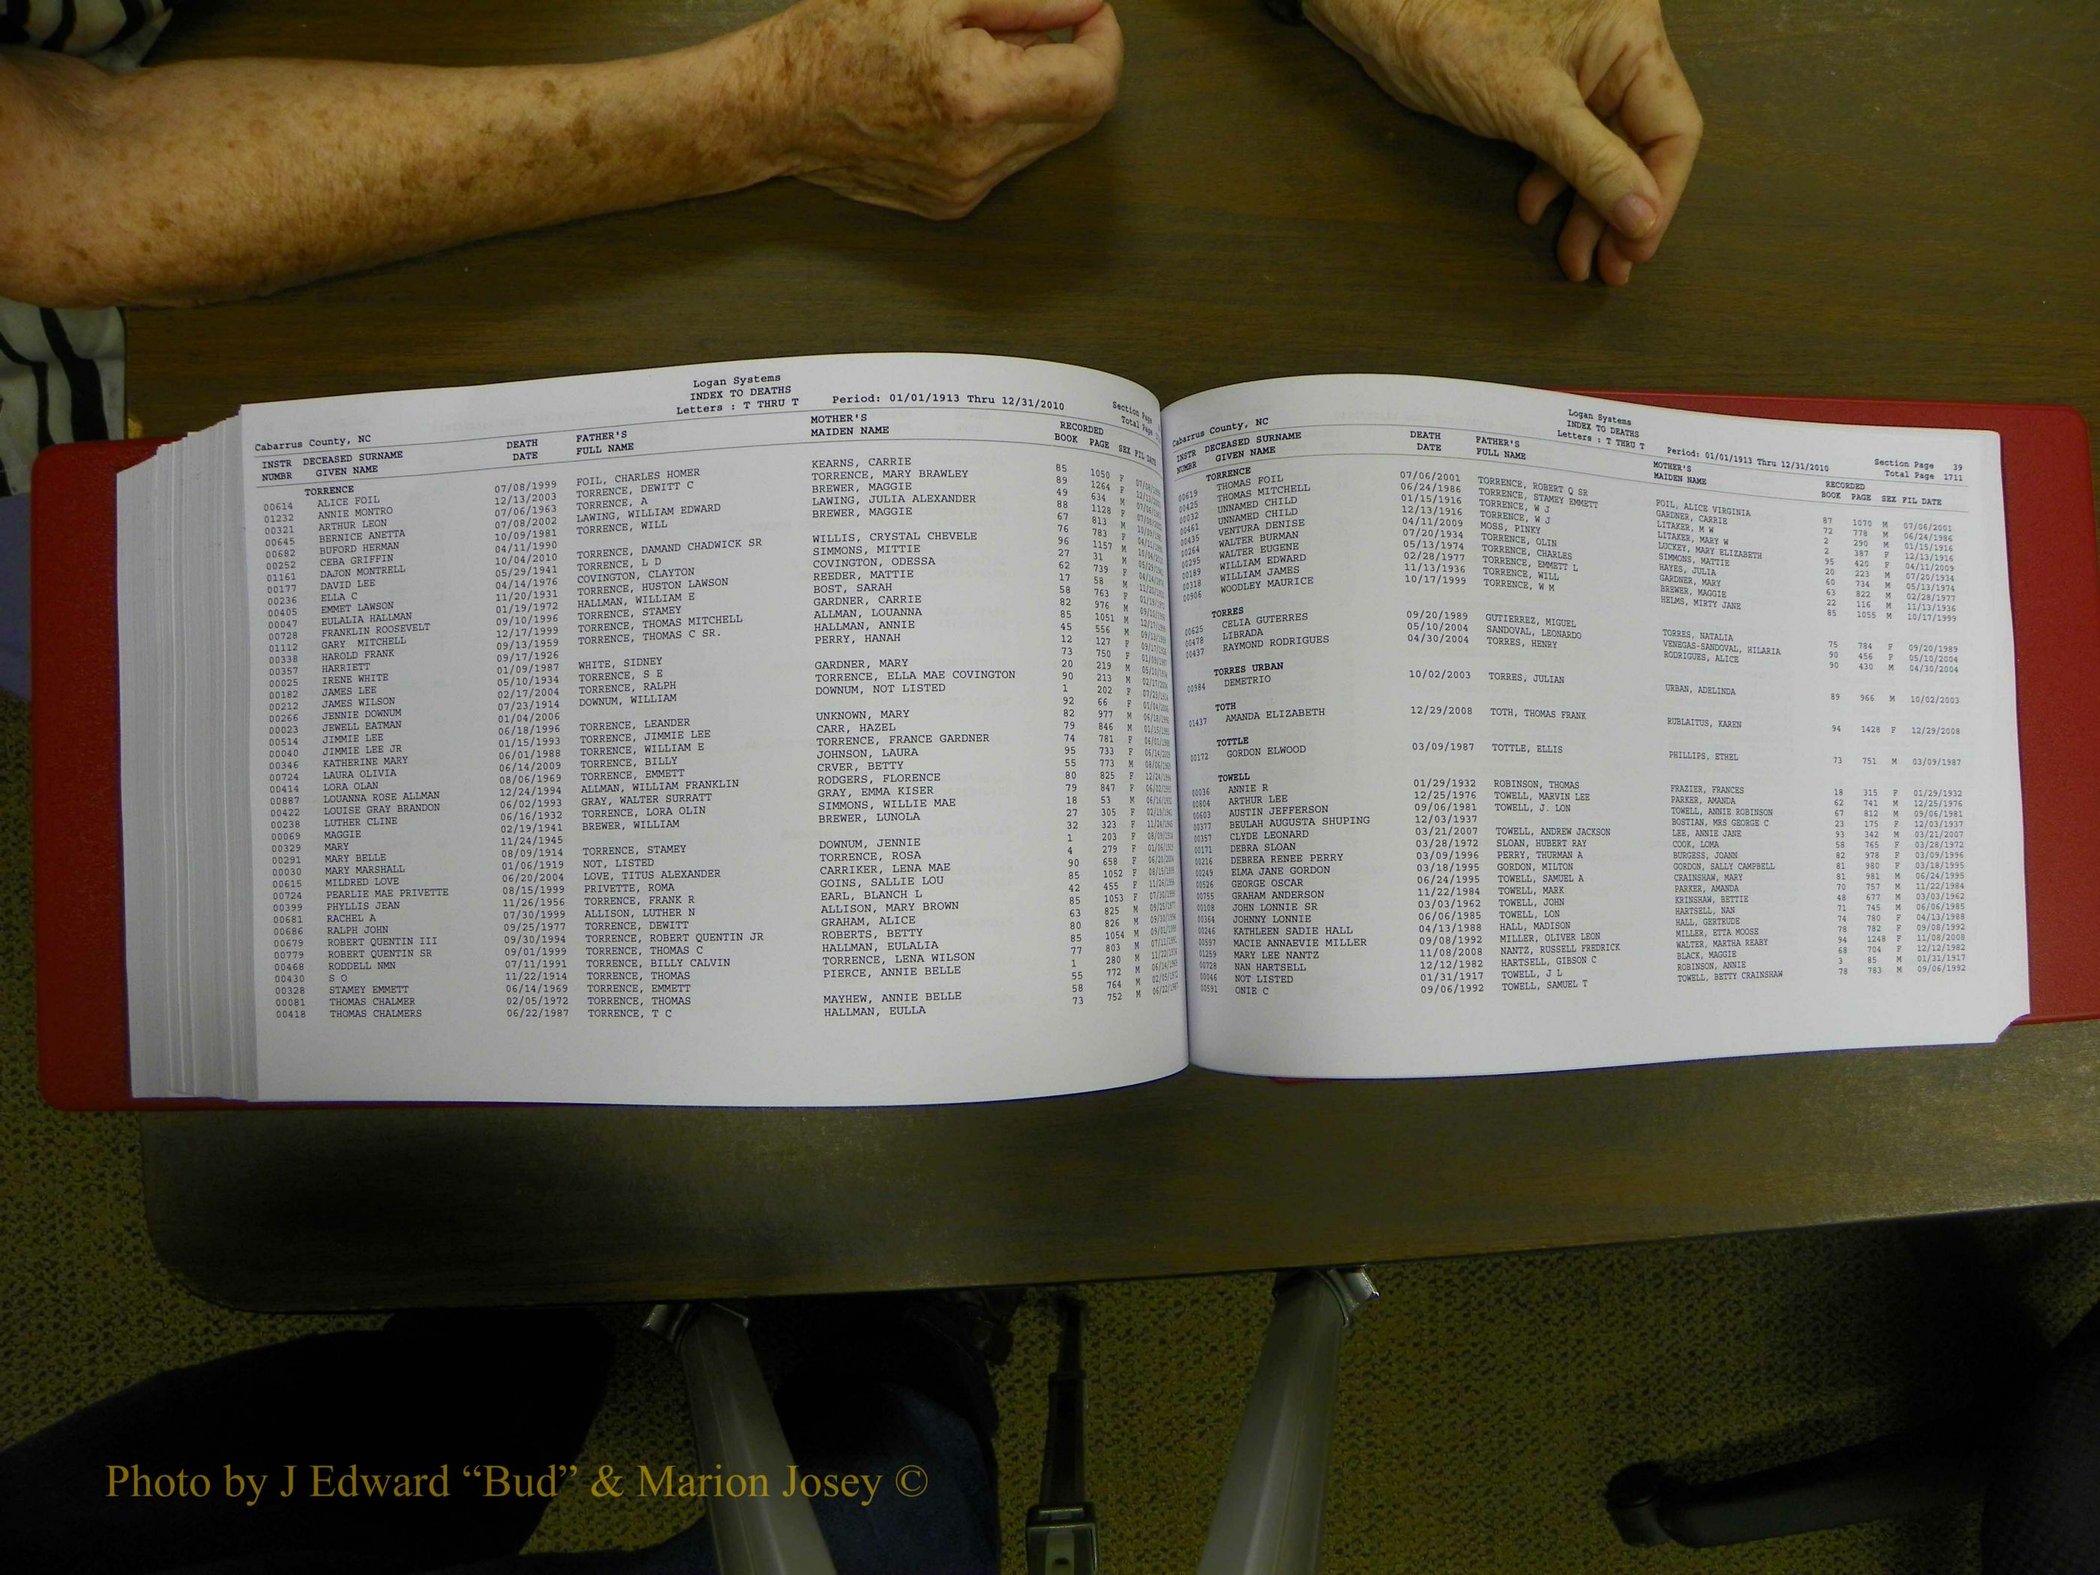 Logan Systems
INDEX TO DEATHS
Cabarrus County, NC Letters : T THRU T Period: 01/01/1913 Thru 12/31/2010 Section Page
Total Page
INSTR DECEASED SURNAME DEATH FATHER'S MOTHER'S RECORDED
NUMBR GIVEN NAME DATE FULL NAME MAIDEN NAME BOOK PAGE SEX FIL DATE
TORRENCE
00614 ALICE FOIL 07/08/1999 FOIL, CHARLES HOMER KEARNS, CARRIE 85 1050 F
01232 ANNIE MONTRO 12/13/2003 TORRENCE, DEWITT C TORRENCE, MARY BRAWLEY 89 1264 F
00321 ARTHUR LEON 07/06/1963 TORRENCE, A BREWER, MAGGIE 49 634 M
00645 BERNICE ANETTA 07/08/2002 LAWING, WILLIAM EDWARD LAWING, JULIA ALEXANDER 88 1128 F
00682 BUFORD HERMAN 10/09/1981 TORRENCE, WILL BREWER, MAGGIE 67 813 M
00252 CEBA GRIFFIN 04/11/1990 76 783 F
01161 DAJON MONTRELL 10/04/2010 TORRENCE, DAMAND CHADWICK SR WILLIS, CRYSTAL CHEVELE 96 1157 M
00177 DAVID LEE 05/29/1941 TORRENCE, L D SIMMONS, MITTIE 27 31 M
00236 ELLA C 04/14/1976 COVINGTON, CLAYTON COVINGTON, ODESSA 62 739 F
00405 EMMET LAWSON 11/20/1931 TORRENCE, HUSTON LAWSON REEDER, MATTIE 17 58 M
00047 EULALIA HALLMAN 01/19/1972 HALLMAN, WILLIAM E BOST, SARAH 58 763 F
00728 FRANKLIN ROOSEVELT 09/10/1996 TORRENCE, STAMEY GARDNER, CARRIE 82 976 M
01112 GARY MITCHELL 12/17/1999 TORRENCE, THOMAS MITCHELL ALLMAN, LOUANNA 85 1051 M
00338 HAROLD FRANK 09/13/1959 TORRENCE, THOMAS C SR. HALLMAN, ANNIE 45 556 M
00357 HARRIETT 09/17/1926 PERRY, HANAH 12 127 F
00025 IRENE WHITE 01/09/1987 WHITE, SIDNEY 73 750 F
00182 JAMES LEE 05/10/1934 TORRENCE, S E GARDNER, MARY 20 219 M
00212 JAMES WILSON 02/17/2004 TORRENCE, RALPH TORRENCE, ELLA MAE COVINGTON 90 213 M
00266 JENNIE DOWNUM 07/23/1914 DOWNUM, WILLIAM DOWNUM, NOT LISTED 1 202 F
00023 JEWELL EATMAN 01/04/2006 92 66 F
00514 JIMMIE LEE 06/18/1996 TORRENCE, LEANDER UNKNOWN, MARY 82 977 M
00040 JIMMIE LEE JR 01/15/1993 TORRENCE, JIMMIE LEE CARR, HAZEL 79 846 M
00346 KATHERINE MARY 06/01/1988 TORRENCE, WILLIAM E TORRENCE, FRANCE GARDNER 74 781 F
00724 LAURA OLIVIA 06/14/2009 TORRENCE, BILLY JOHNSON, LAURA 95 733 F
00414 LORA OLAN 08/06/1969 TORRENCE, EMMETT CRVER, BETTY 55 773 M
00887 LOUANNA ROSE ALLMAN 12/24/1994 ALLMAN, WILLIAM FRANKLIN RODGERS, FLORENCE 80 825 F
00422 LOUISE GRAY BRANDON 06/02/1993 GRAY, WALTER SURRATT GRAY, EMMA KISER 79 847 F
00238 LUTHER CLINE 06/16/1932 TORRENCE, LORA OLIN SIMMONS, WILLIE MAE 18 53 M
00069 MAGGIE 02/19/1941 BREWER, WILLIAM BREWER, LUNOLA 27 305 F
00329 MARY 11/24/1945 32 323 F
00291 MARY BELLE 08/09/1914 TORRENCE, STAMEY DOWNUM, JENNIE 1 203 F
00030 MARY MARSHALL 01/06/1919 NOT, LISTED TORRENCE, ROSA 4 279 F
00615 MILDRED LOVE 06/20/2004 LOVE, TITUS ALEXANDER CARRIKER, LENA MAE 90 658 F
00724 PEARLIE MAE PRIVETTE 08/15/1999 PRIVETTE, ROMA GOINS, SALLIE LOU 85 1052 F
00399 PHYLLIS JEAN 11/26/1956 TORRENCE, FRANK R EARL, BLANCH L 42 455 F
00681 RACHEL A 07/30/1999 ALLISON, LUTHER N ALLISON, MARY BROWN 85 1053 F
00686 RALPH JOHN 09/25/1977 TORRENCE, DEWITT GRAHAM, ALICE 63 825 M
00679 ROBERT QUENTIN III 09/30/1994 TORRENCE, ROBERT QUENTIN JR ROBERTS, BETTY 80 826 M
00779 ROBERT QUENTIN SR 09/01/1999 TORRENCE, THOMAS C HALLMAN, EULALIA 85 1054 M
00468 RODDELL NMN 07/11/1991 TORRENCE, BILLY CALVIN TORRENCE, LENA WILSON 77 803 M
00430 S O 11/22/1914 TORRENCE, THOMAS PIERCE, ANNIE BELLE 1 280 M
00328 STAMEY EMMETT 06/14/1969 TORRENCE, EMMETT 55 772 M
00081 THOMAS CHALMER 02/05/1972 TORRENCE, THOMAS MAYHEW, ANNIE BELLE 58 764 M
00418 THOMAS CHALMERS 06/22/1987 TORRENCE, T C HALLMAN, EULLA 73 752 M
Logan Systems
INDEX TO DEATHS
Cabarrus County, NC Letters : T THRU T Period: 01/01/1913 Thru 12/31/2010 Section Page 39
Total Page 1711
INSTR DECEASED SURNAME DEATH FATHER'S MOTHER'S RECORDED
NUMBR GIVEN NAME DATE FULL NAME MAIDEN NAME BOOK PAGE SEX FIL DATE
TORRENCE
00619 THOMAS FOIL 07/06/2001 TORRENCE, ROBERT Q SR FOIL, ALICE VIRGINIA 87 1070 M 07/06/2001
00425 THOMAS MITCHELL 06/24/1986 TORRENCE, STAMEY EMMETT GARDNER, CARRIE 72 778 M 06/24/1986
00032 UNNAMED CHILD 01/15/1916 TORRENCE, W J LITAKER, M W 2 290 M 01/15/1916
00461 UNNAMED CHILD 12/13/1916 TORRENCE, W J LITAKER, MARY W 2 387 F 12/13/1916
00435 VENTURA DENISE 04/11/2009 MOSS, PINKY LUCKEY, MARY ELIZABETH 95 420 F 04/11/2009
00264 WALTER BURMAN 07/20/1934 TORRENCE, OLIN SIMMONS, MATTIE 20 223 M 07/20/1934
00295 WALTER EUGENE 05/13/1974 TORRENCE, CHARLES HAYES, JULIA 60 734 M 05/13/1974
00189 WILLIAM EDWARD 02/28/1977 TORRENCE, EMMETT L GARDNER, MARY 63 822 M 02/28/1977
00318 WILLIAM JAMES 11/13/1936 TORRENCE, WILL BREWER, MAGGIE 22 116 M 11/13/1936
00906 WOODLEY MAURICE 10/17/1999 TORRENCE, W M HELMS, MIRTY JANE 85 1055 M 10/17/1999
TORRES
00625 CELIA GUTERRES 09/20/1989 GUTIERREZ, MIGUEL TORRES, NATALIA 75 784 F 09/20/1989
00478 LIBRADA 05/10/2004 SANDOVAL, LEONARDO VENEGAS-SANDOVAL, HILARIA 90 456 F 05/10/2004
00437 RAYMOND RODRIGUES 04/30/2004 TORRES, HENRY RODRIGUES, ALICE 90 430 M 04/30/2004
TORRES URBAN
00984 DEMETRIO 10/02/2003 TORRES, JULIAN URBAN, ADELINDA 89 966 M 10/02/2003
TOTH
01437 AMANDA ELIZABETH 12/29/2008 TOTH, THOMAS FRANK RUBLAITUS, KAREN 94 1428 F 12/29/2008
TOTTLE
00172 GORDON ELWOOD 03/09/1987 TOTTLE, ELLIS PHILLIPS, ETHEL 73 751 M 03/09/1987
TOWELL
00036 ANNIE R 01/29/1932 ROBINSON, THOMAS FRAZIER, FRANCES 18 315 F 01/29/1932
00804 ARTHUR LEE 12/25/1976 TOWELL, MARVIN LEE PARKER, AMANDA 62 741 M 12/25/1976
00603 AUSTIN JEFFERSON 09/06/1981 TOWELL, J. LON TOWELL, ANNIE ROBINSON 67 812 M 09/06/1981
00377 BEULAH AUGUSTA SHUPING 12/03/1937 BOSTIAN, MRS GEORGE C 23 175 F 12/03/1937
00357 CLYDE LEONARD 03/21/2007 TOWELL, ANDREW JACKSON LEE, ANNIE JANE 93 342 M 03/21/2007
00171 DEBRA SLOAN 03/28/1972 SLOAN, HUBERT RAY COOK, LOMA 58 765 F 03/28/1972
00216 DEBREA RENEE PERRY 03/09/1996 PERRY, THURMAN A BURGESS, JOANN 82 978 F 03/09/1996
00249 ELMA JANE GORDON 03/18/1995 GORDON, MILTON GORDON, SALLY CAMPBELL 81 980 F 03/18/1995
00526 GEORGE OSCAR 06/24/1995 TOWELL, SAMUEL A CRAINSHAW, MARY 81 981 M 06/24/1995
00755 GRAHAM ANDERSON 11/22/1984 TOWELL, MARK PARKER, AMANDA 70 757 M 11/22/1984
00108 JOHN LONNIE SR 03/03/1962 TOWELL, JOHN KRINSHAW, BETTIE 48 677 M 03/03/1962
00364 JOHNNY LONNIE 06/06/1985 TOWELL, LON HARTSELL, NAN 71 745 M 06/06/1985
00246 KATHLEEN SADIE HALL 04/13/1988 HALL, MADISON HALL, GERTRUDE 74 780 F 04/13/1988
00597 MACIE ANNAEVIE MILLER 09/08/1992 MILLER, OLIVER LEON MILLER, ETTA MOOSE 78 782 F 09/08/1992
01259 MARY LEE NANTZ 11/08/2008 NANTZ, RUSSELL FREDRICK WALTER, MARTHA REABY 94 1248 F 11/08/2008
00728 NAN HARTSELL 12/12/1982 HARTSELL, GIBSON C BLACK, MAGGIE 68 704 F 12/12/1982
00046 NOT LISTED 01/31/1917 TOWELL, J L ROBINSON, ANNIE 3 85 M 01/31/1917
00591 ONIE C 09/06/1992 TOWELL, SAMUEL T TOWELL, BETTY CRAINSHAW 78 783 M 09/06/1992
Photo by J Edward “Bud” & Marion Josey ©